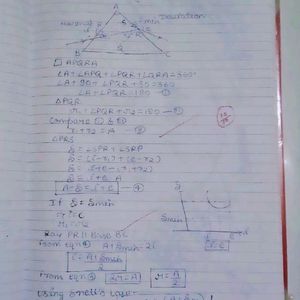 Deviation
A
Normal
δmin
P
Q
B
C
□ APQRA
∠A + ∠APQ + ∠PQR + ∠QRA = 360°
∠A + 90 + ∠PQR + 90 = 360
∠A + ∠PQR = 180 ①
△PQR
r₁ + ∠PQR + r₂ = 180 — ②
Compare ① & ②
r₁ + r₂ = A — ③
∠PRS
δ = ∠SPR + ∠SRP
δ = (i-r₁) + (e-r₂)
δ = i+e - (r₁+r₂)
δ = i+e - A
A+δ = i+e — ④
If δ = δmin
i = e
δmin
Ray PR || Base BC
From eqn ④ A + δmin = 2i
i = A + δmin / 2
From eqn ③ 2r = A r = A/2
Using Snell's Law